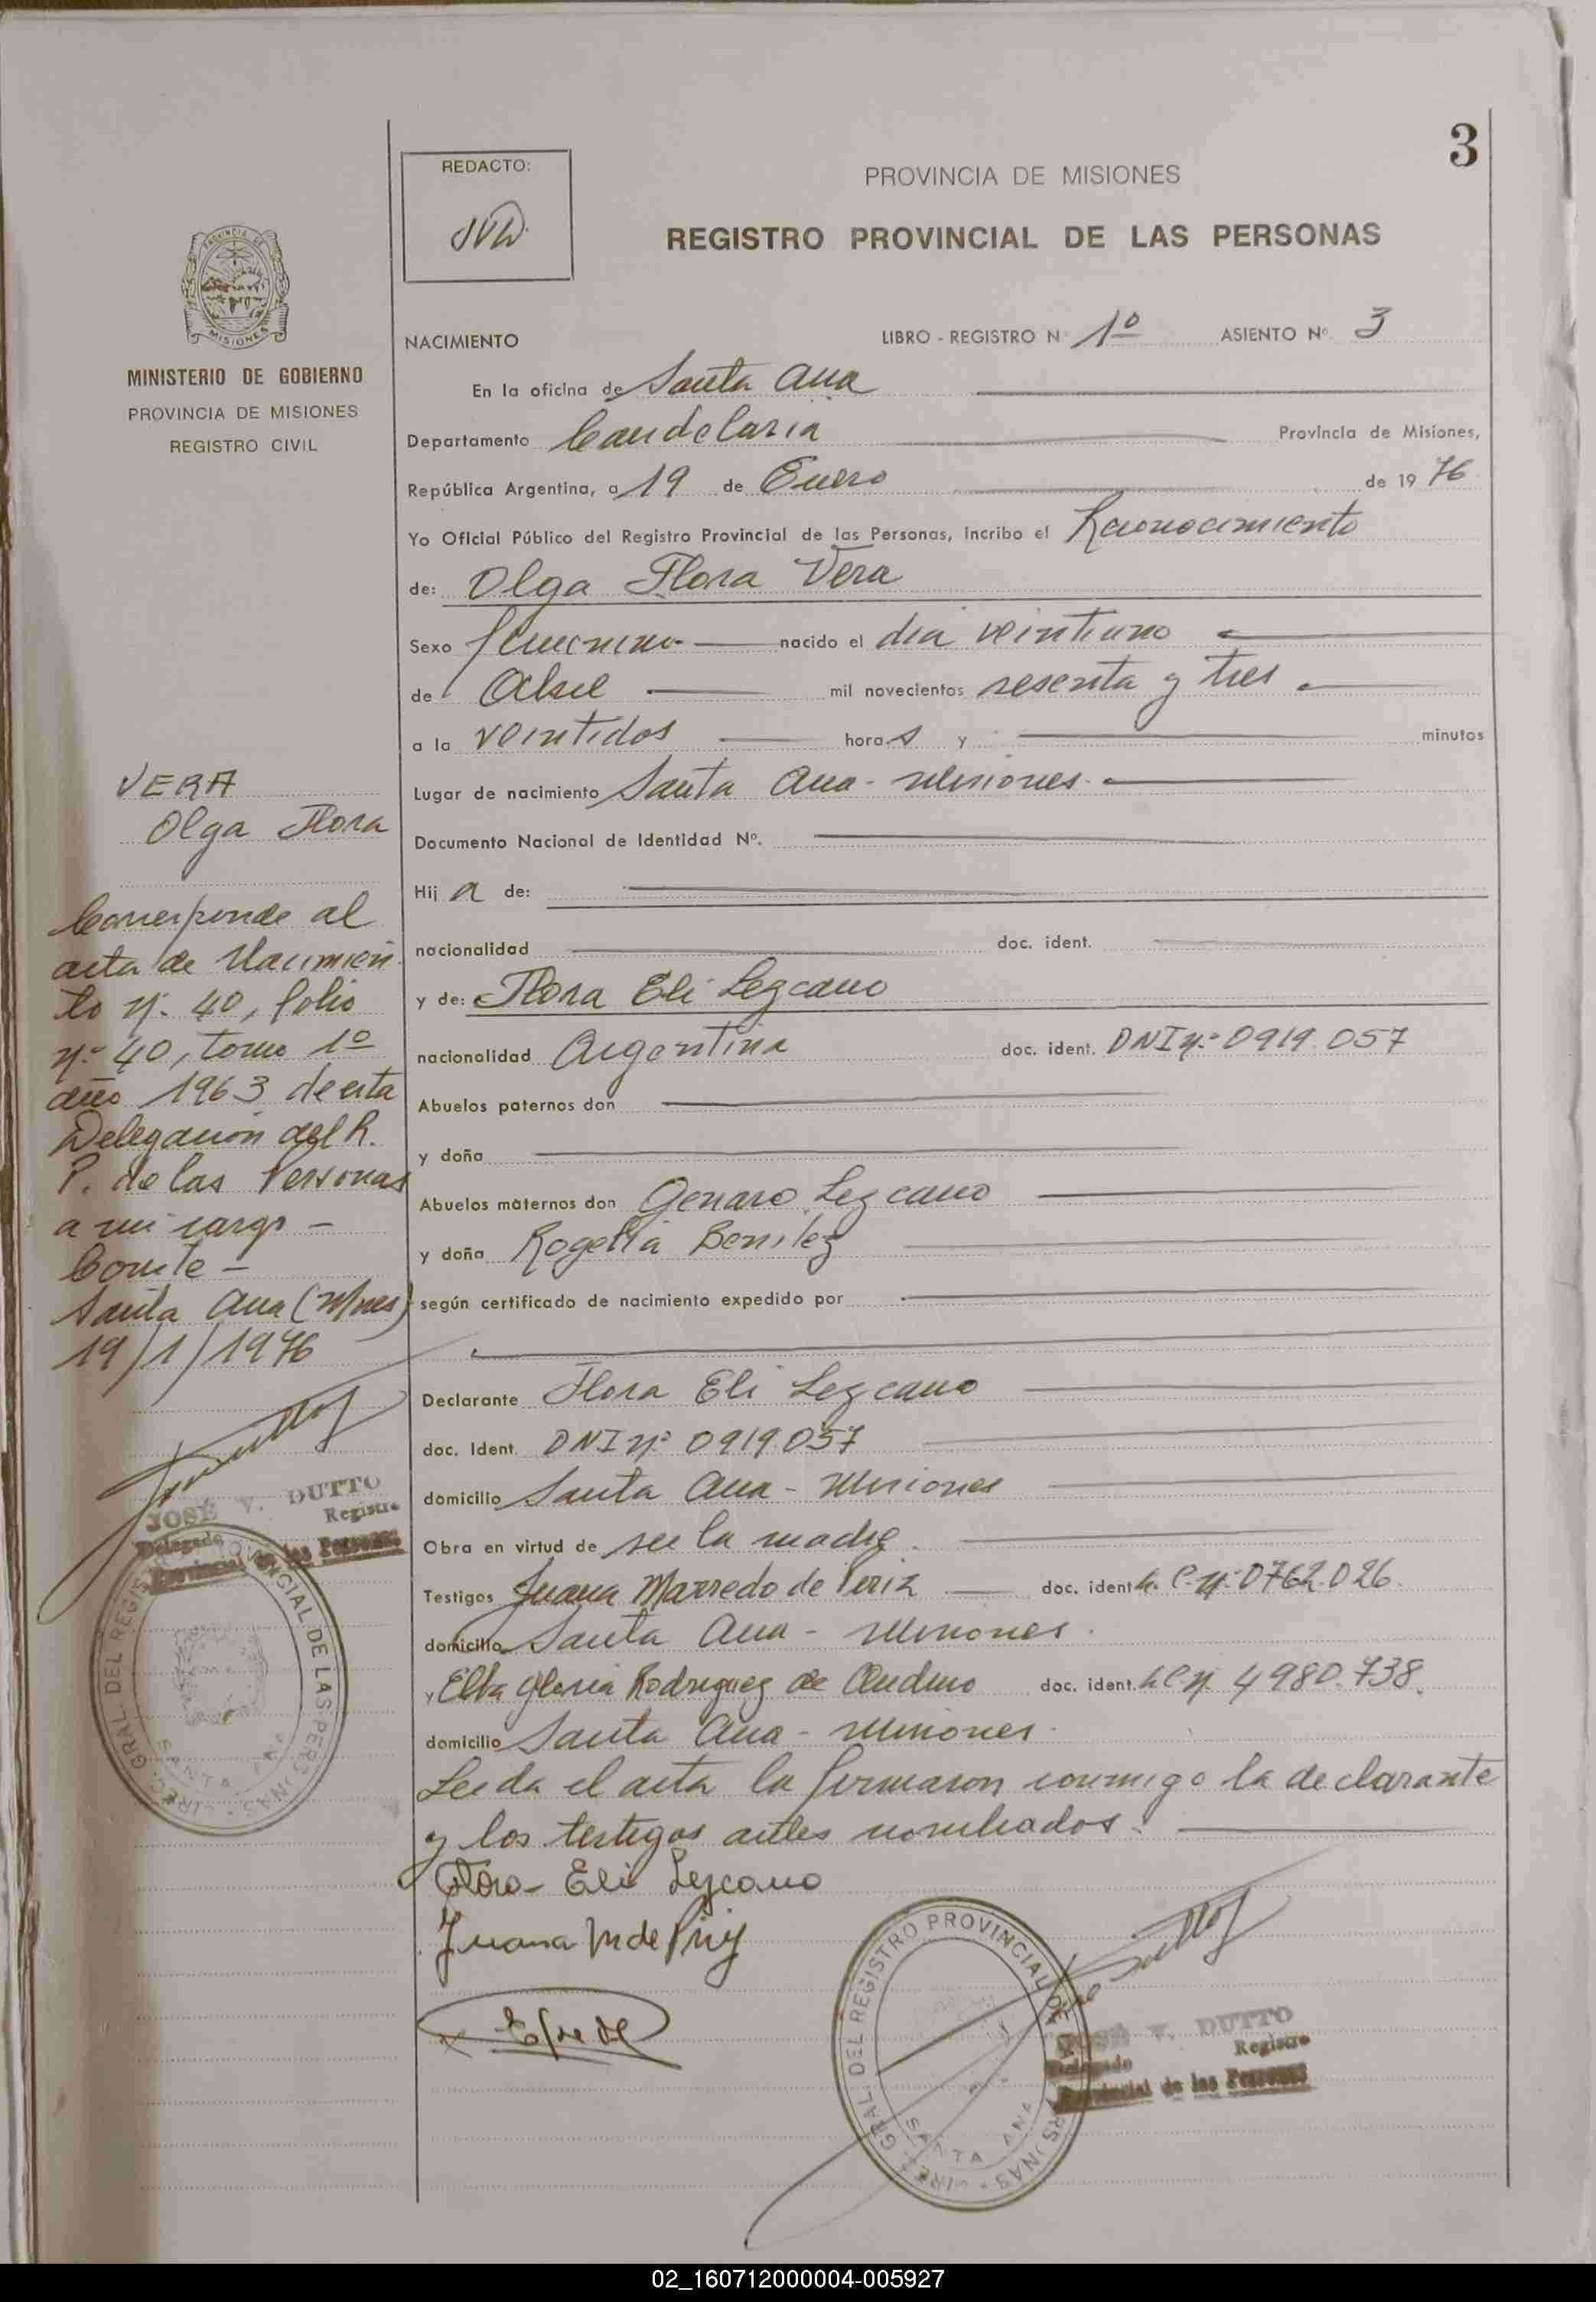 3
REDACTO:
PROVINCIA DE MISIONES
REGISTRO PROVINCIAL DE LAS PERSONAS
PROVINCIA DE
MISIONES
MINISTERIO DE GOBIERNO
PROVINCIA DE MISIONES
REGISTRO CIVIL
NACIMIENTO LIBRO - REGISTRO N 1º ASIENTO Nº. 3
En la oficina de Santa Ana
Departamento Candelaria Provincia de Misiones,
República Argentina, a 19 de Enero de 1976
Yo Oficial Público del Registro Provincial de las Personas, incribo el Reconocimiento
de: Olga Flora Vera
Sexo femenino nacido el día veintiuno
de Abril mil novecientos sesenta y tres
a la veintidos horas y minutos
Lugar de nacimiento Santa Ana - Misiones.
Documento Nacional de Identidad Nº.
Hija de:
nacionalidad doc. ident.
y de: Flora Eli Lezcano
nacionalidad Argentina doc. ident. DNI nº 0919.057
Abuelos paternos don
y doña
Abuelos maternos don Genaro Lezcano
y doña Rogelia Benitez
según certificado de nacimiento expedido por
Declarante Flora Eli Lezcano
doc. Ident. DNI nº 0919.057
domicilio Santa Ana - Misiones
Obra en virtud de ser la madre.
Testigos Juana Marredo de Piriz doc. ident L. C. nº 0762.026.
domicilio Santa Ana - Misiones.
y Elba Gloria Rodriguez de Andino doc. ident. LC nº 4980.738.
domicilio Santa Ana - Misiones.
Leida el acta la firmaron conmigo la declarante
y los testigos antes nombrados.
Flora Eli Lezcano
Juana M de Piriz
VERA
Olga Flora
Corresponde al
acta de Nacimien
to nº. 40, folio
nº 40, tomo 1º
año 1963 de esta
Delegación del R.
P. de las Personas
a mi cargo -
Conste -
Santa Ana (Mnes)
19/1/1976
JOSÉ V. DUTTO
Delegado Registro
Provincial de las Personas
DIREC. GRAL. DEL REGISTRO PROVINCIAL DE LAS PERSONAS
SANTA ANA
DIREC. GRAL. DEL REGISTRO PROVINCIAL DE LAS PERSONAS
SANTA ANA
JOSÉ V. DUTTO
Delegado Registro
Provincial de las Personas
02_160712000004-005927